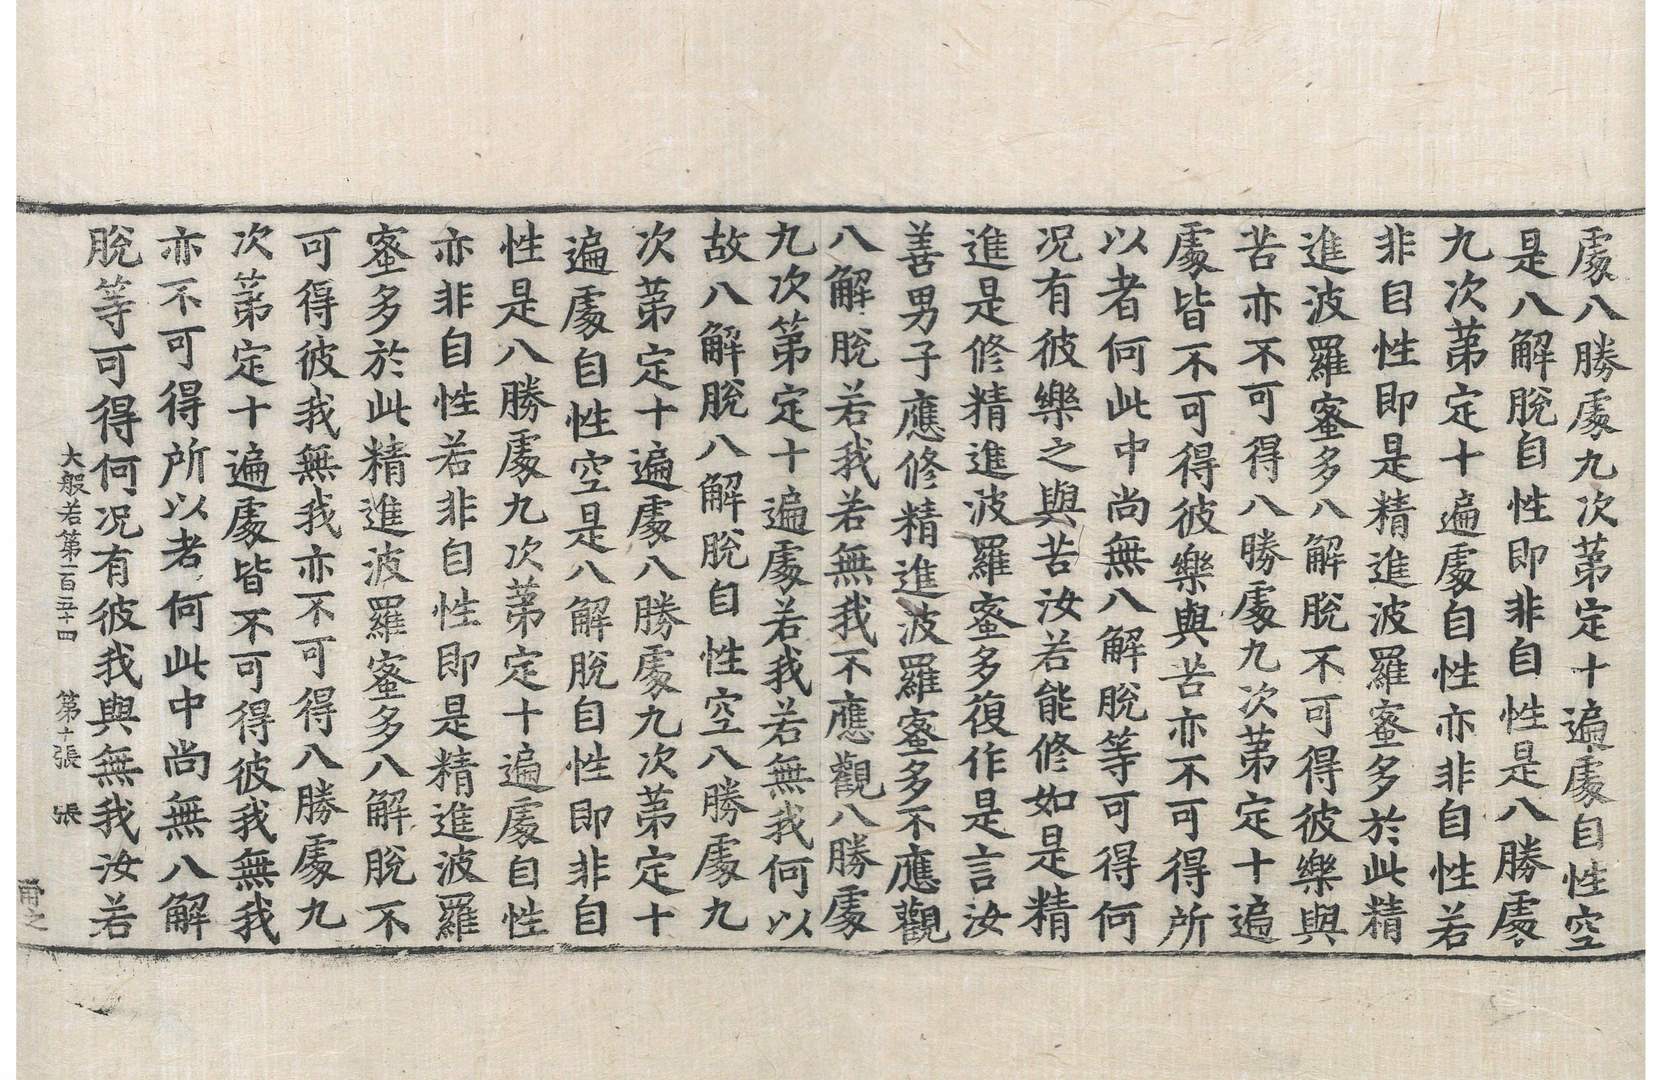 處八勝處九次第定十遍處自性空
是八解脫自性即非自性是八勝處
九次第定十遍處自性亦非自性若
非自性即是精進波羅蜜多於此精
進波羅蜜多八解脫不可得彼樂與
苦亦不可得八勝處九次第定十遍
處皆不可得彼樂與苦亦不可得所
以者何此中尚無八解脫等可得何
况有彼樂之與苦汝若能修如是精
進是修精進波羅蜜多復作是言汝
善男子應修精進波羅蜜多不應觀
八解脫若我若無我不應觀八勝處
九次第定十遍處若我若無我何以
故八解脫八解脫自性空八勝處九
次第定十遍處八勝處九次第定十
遍處自性空是八解脫自性即非自
性是八勝處九次第定十遍處自性
亦非自性若非自性即是精進波羅
蜜多於此精進波羅蜜多八解脫不
可得彼我無我亦不可得八勝處九
次第定十遍處皆不可得彼我無我
亦不可得所以者何此中尚無八解
脫等可得何况有彼我與無我汝若
大般若第一百五十四 第十張 張